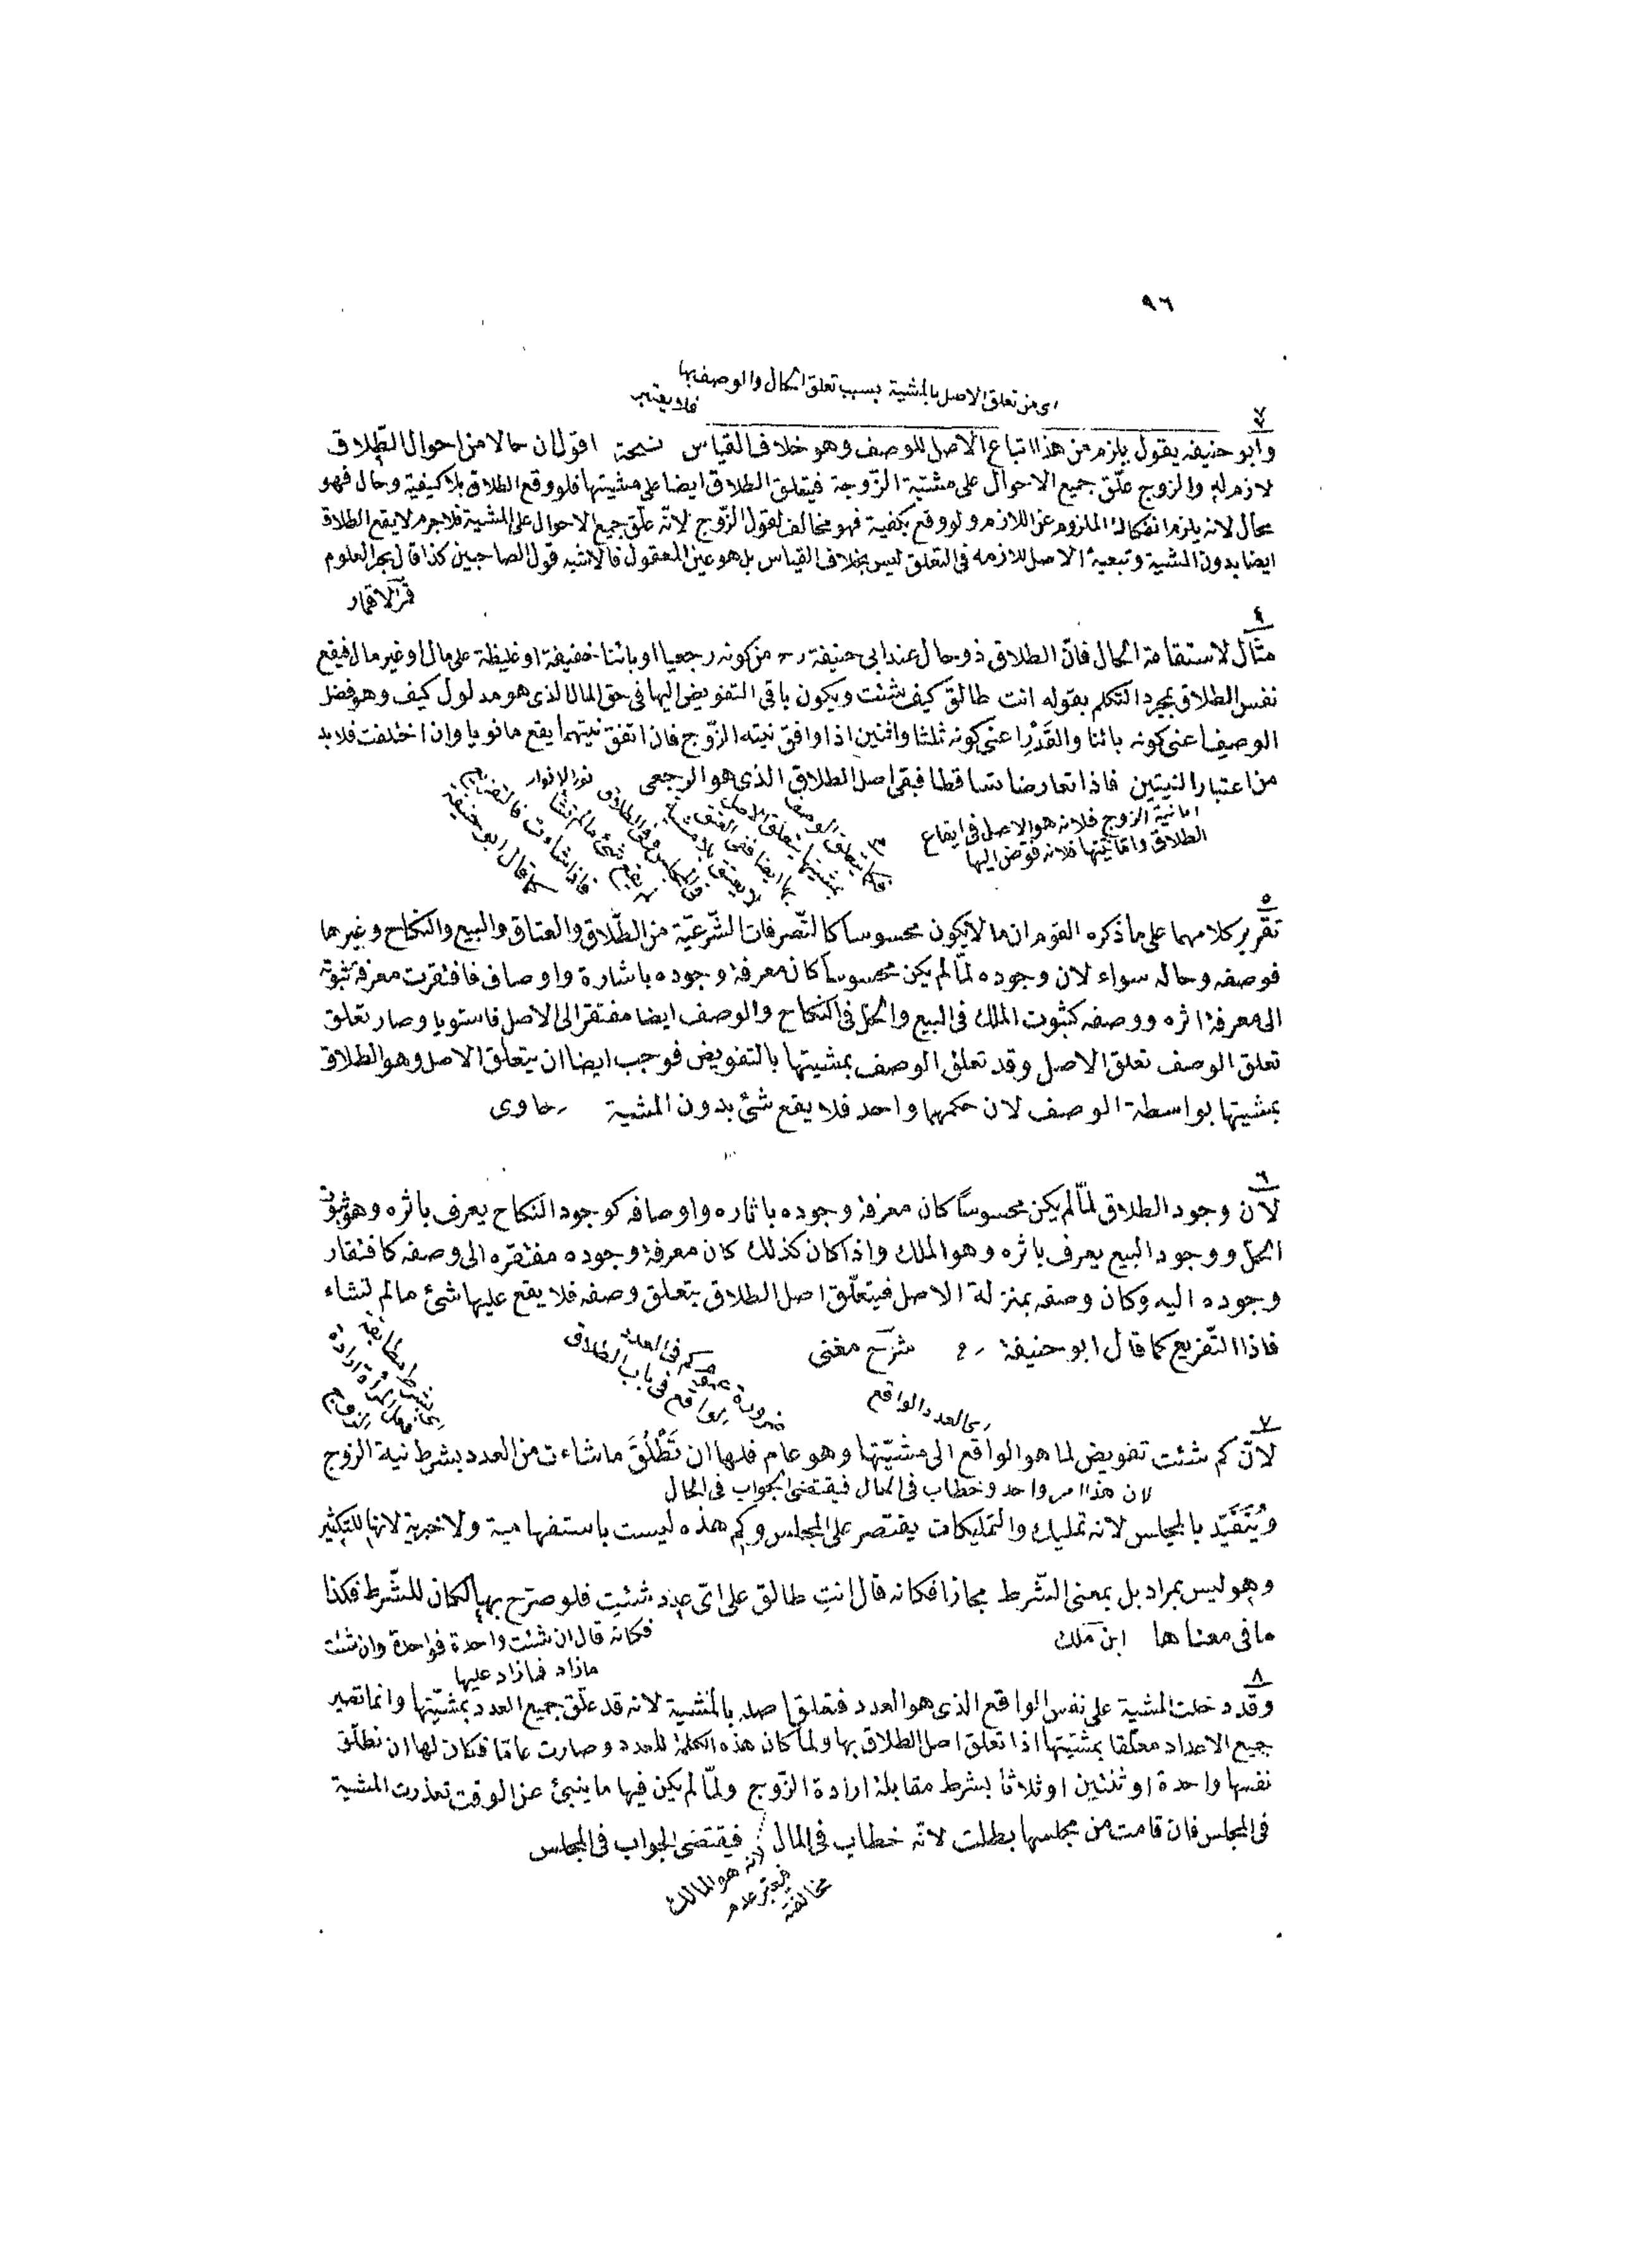 ٩٦
اى من تعلق الاصل بالمشية بسبب تعلق الحال والوصف بها
فلا يعتبر
٧
وابو حنيفه يقول يلزم من هذا اتباع الاصل للوصف وهو خلاف القياس نسيحة اقول ان حالا من احوال الطّلاق
لازم له والزوج علّق جميع الاحوال على مشتية الزّوجة فيتعلق الطلاق ايضا على مشيتها فلو وقع الطلاق بلا كيفية وحال فهو
محال لانه يلزم انفكاك الملزوم عن اللازم ولو وقع بكفية فهو مخالف لقول الزّوج لانّه علّق جميع الاحوال على المشية فلا جرم لا يقع الطلاق
ايضا بدون المشية وتبعية الاصل للازمه فى التعلق ليس بخلاف القياس بل هو عين المعقول فالاشبه قول الصاحبين كذا قال بحر العلوم
قمر الاقمار
٤
مثال لاستقامة الحال فانّ الطلاق ذو حال عند ابى حنيفة رح من كونه رجعيا او بائنا خفيفة او غليظة على مال او غير مال فيقع
نفس الطلاق بمجرد التكلم بقوله انت طالق كيف شئت ويكون باقى التفويض اليها فى حق الحال الذى هو مدلول كيف وهو فضل
الوصف اعنى كونه بائنا والقَدْرِ اعنى كونه ثلثا واثنين اذا وافق نيته الزّوج فان اتفق نيتهما يقع مانويا وان اختلفت فلا بد
من اعتبار النيتين فاذا تعارضا تساقطا فبقى اصل الطلاق الذى هو الرجعى نور الانوار
اما نية الزوج فلانه هو الاصل فى ايقاع
الطلاق واما نيتها فلانه فوّض اليها
كما قال ابو حنيفة
٥
تقرير كلامهما على ما ذكره القوم ان ما لا يكون محسوسا كالتّصرفات الشّرعيّة من الطّلاق والعتاق والبيع والنكاح وغيرها
فوصفه وحاله سواء لان وجوده لمّا لم يكن محسوسا كان معرفة وجوده باشارة واوصاف فافتقرت معرفة ثبوته
الى معرفة اثره ووصفه كثبوت الملك فى البيع والحل فى النكاح والوصف ايضا مفتقر الى الاصل فاستويا وصار تعلق
تعلق الوصف تعلق الاصل وقد تعلق الوصف بمشيتها بالتفويض فوجب ايضا ان يتعلق الاصل وهو الطلاق
بمشيتها بواسطة الوصف لان حكمهما واحد فلا يقع شئ بدون المشية رحاوى
٦
لان وجود الطلاق لمّا لم يكن محسوسًا كان معرفة وجوده باثاره واوصافه كوجود النكاح يعرف باثره وهو ثبوت
الحل ووجود البيع يعرف باثره وهو الملك واذا كان كذلك كان معرفة وجوده مفتقره الى وصفه كافتقار
وجوده اليه وكان وصفه بمنزلة الاصل فيتعلّق اصل الطلاق بتعلق وصفه فلا يقع عليها شئ مالم تشاء
فاذا التّفريع كما قال ابو حنيفة رح شرح مغنى
اى العدد الواقع
٧
لانّ كم شئت تفويض لما هو الواقع الى مشيّتها وهو عام فلها ان تَطْلُقَ ماشاءت من العدد بشرط نية الزوج
لان هذا امر واحد وخطاب فى الحال فيقتضى الجواب فى الحال
ويُتَقَيّد بالمجلس لانه تمليك والتمليكات يقتصر على المجلس وكم هذه ليست باستفهامية ولا خبرية لانها للتكثير
وهو ليس بمراد بل بمعنى الشّرط مجازا فكانه قال انتِ طالق على اىّ عدد شئتِ فلو صرّح بها لكان للشّرط فكذا
مافى معناها ابن ملك
فكانه قال ان شئت واحدة فواحدة وان شئت
مازاد فمازاد عليها
٨
وقد دخلت المشية على نفس الواقع الذى هو العدد فتعلق اصله بالمشية لانه قد علّق جميع العدد بمشيّتها وانما تصير
جميع الاعداد معلّقا بمشيّتها اذا تعلق اصل الطلاق بها ولمّا كان هذه الكلمة للعدد وصارت عامّا فكان لها ان تطلّق
نفسها واحدة او ثنتين او ثلاثا بشرط مقابلة ارادة الزّوج ولمّا لم يكن فيها ما ينبئ عن الوقت تعذرت المشية
فى المجلس فان قامت من مجلسها بطلت لانّه خطاب فى الحال فيقتضى الجواب فى المجلس
لانه هو المالك
فيعتبر عدم
مخالفته